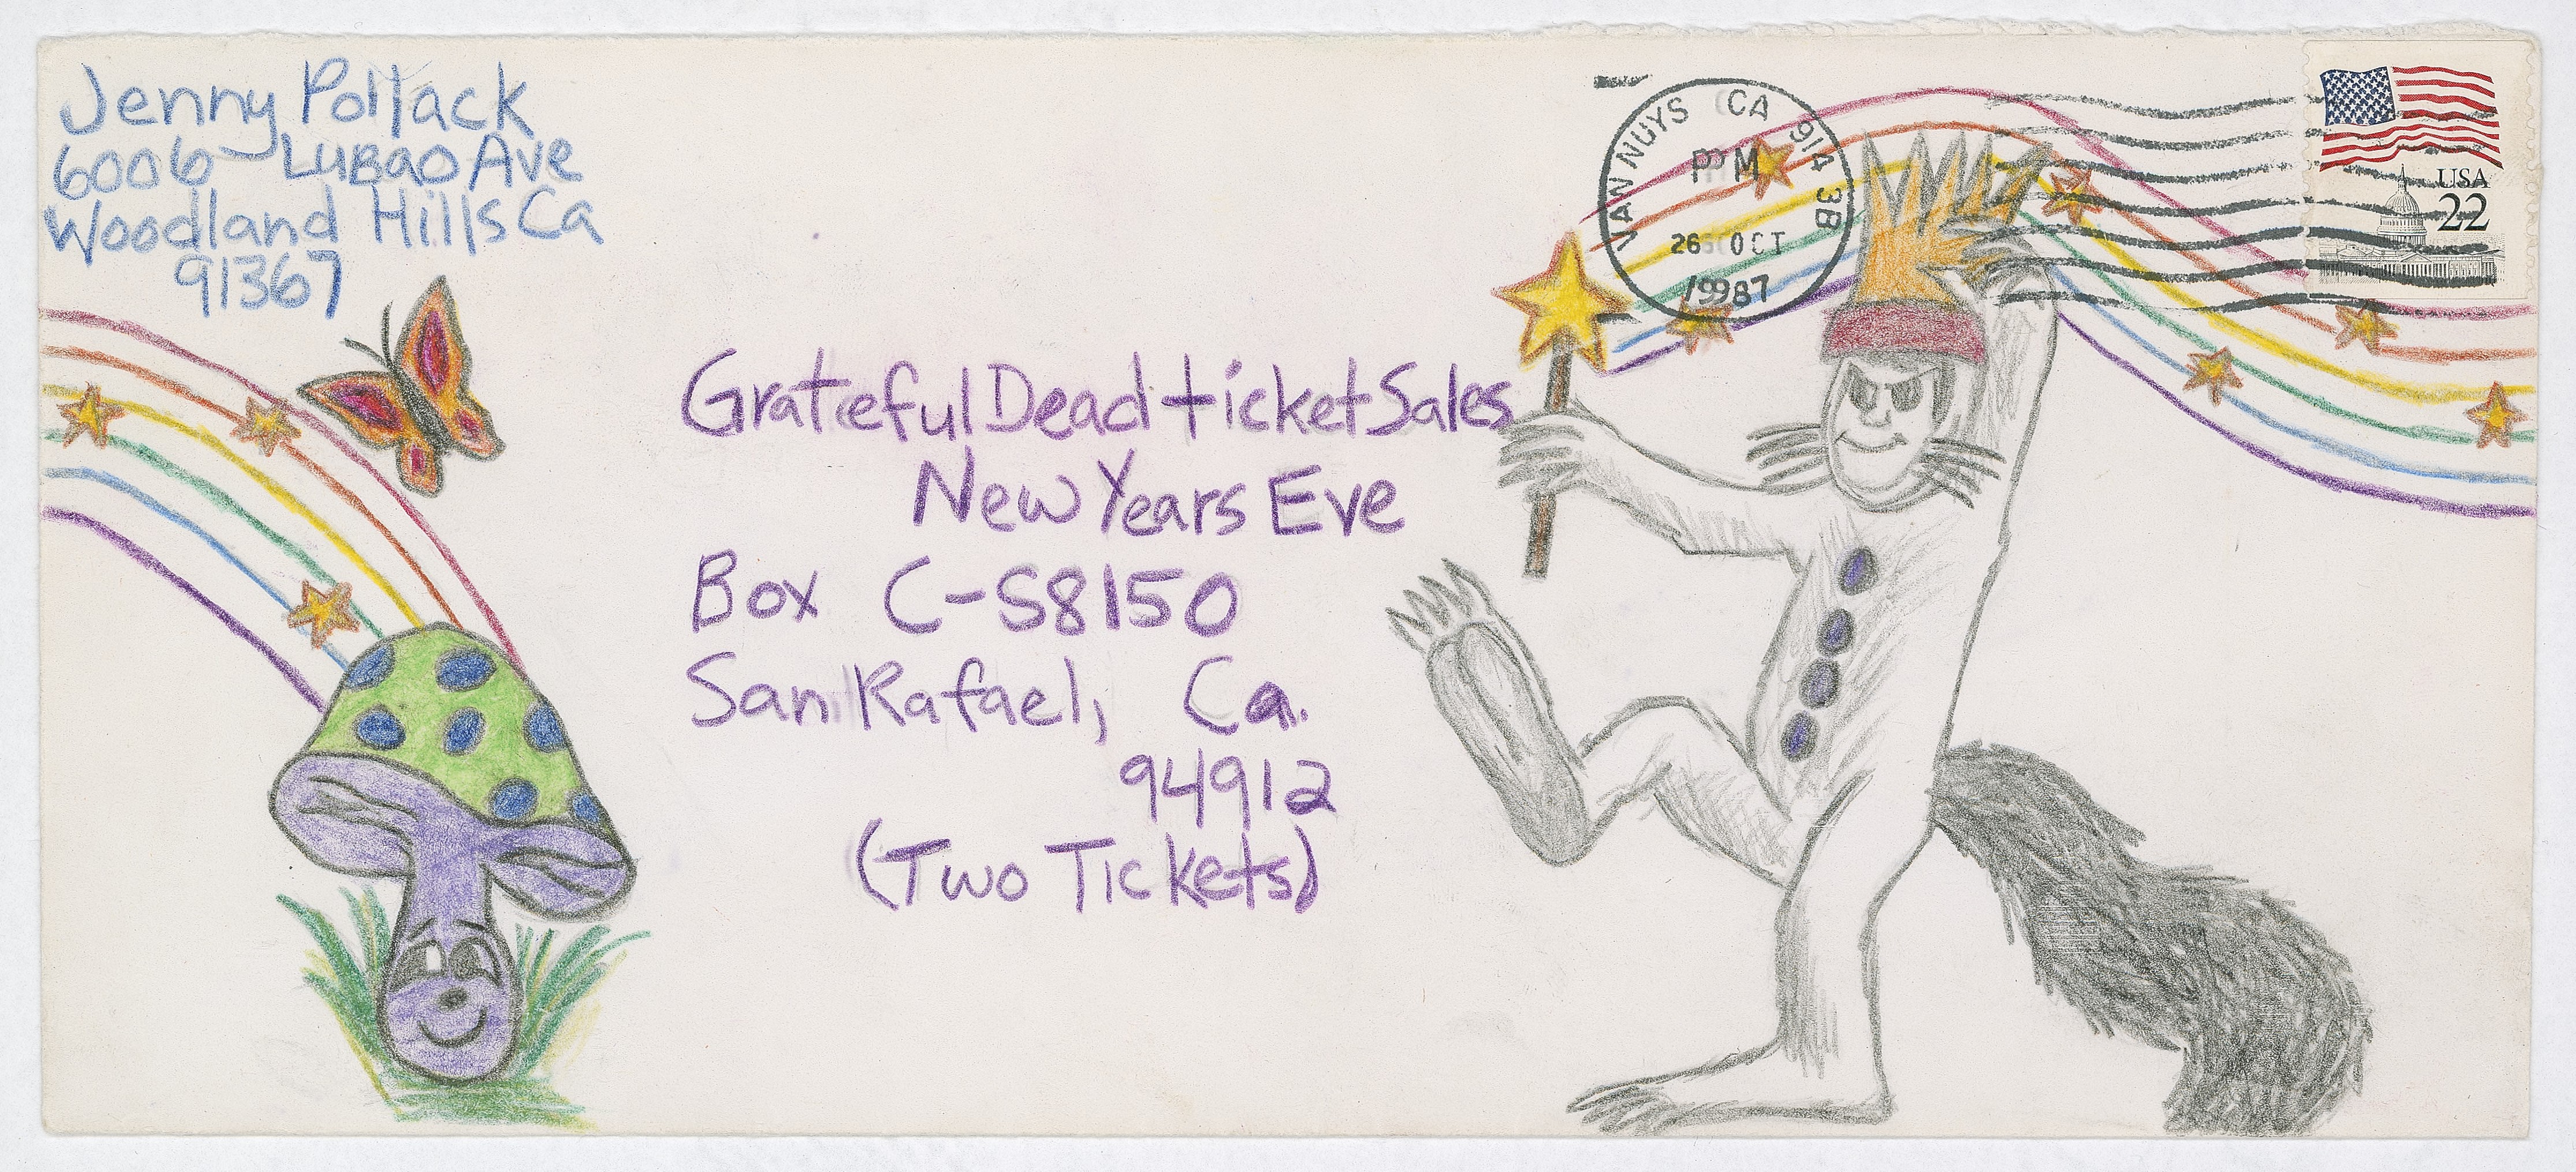 Jenny Pollack
6006 Lubao Ave
Woodland Hills Ca
91367
VAN NUYS CA 914 3B
PM
26 OCT
1987
USA
22
Grateful Dead ticket Sales
New Years Eve
Box C-S8150
San Rafael, Ca.
94912
(Two Tickets)